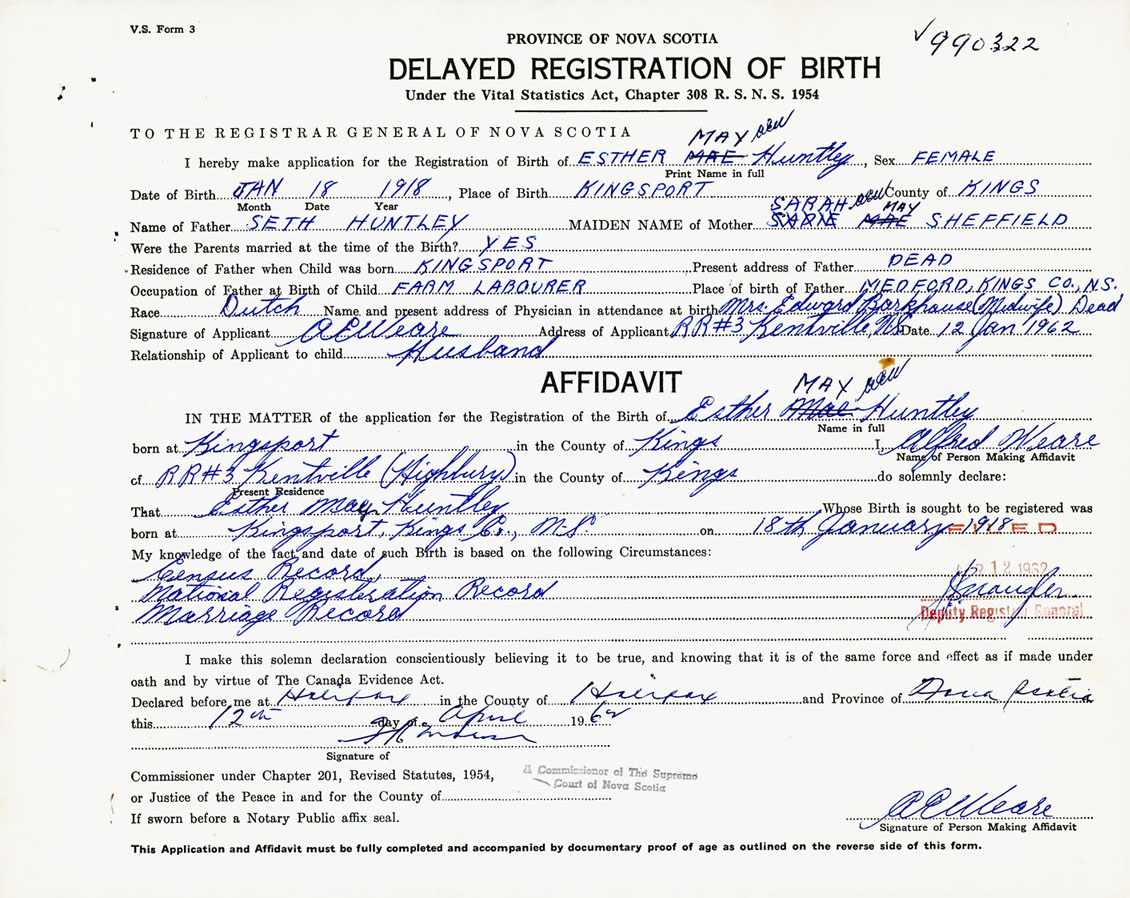 V.S. Form 3
✓990322
PROVINCE OF NOVA SCOTIA
DELAYED REGISTRATION OF BIRTH
Under the Vital Statistics Act, Chapter 308 R. S. N. S. 1954
TO THE REGISTRAR GENERAL OF NOVA SCOTIA
MAY aew
I hereby make application for the Registration of Birth of ESTHER MAE Huntley, Sex FEMALE
Print Name in full
Date of Birth JAN 18 1918, Place of Birth KINGSPORT County of KINGS
Month Date Year
SARAH aew MAY
Name of Father SETH HUNTLEY MAIDEN NAME of Mother SADIE MAE SHEFFIELD
Were the Parents married at the time of the Birth? YES
Residence of Father when Child was born KINGSPORT Present address of Father DEAD
Occupation of Father at Birth of Child FARM LABOURER Place of birth of Father MEDFORD, KINGS CO., N.S.
Race Dutch Name and present address of Physician in attendance at birth Mrs. Edward Barkhouse (Midwife) Dead
Signature of Applicant AEWeare Address of Applicant RR#3 Kentville, NS Date 12 Jan 1962
Relationship of Applicant to child Husband
AFFIDAVIT
MAY aew
IN THE MATTER of the application for the Registration of the Birth of Esther Mae Huntley
Name in full
born at Kingsport in the County of Kings I, Alfred Weare
Name of Person Making Affidavit
of RR#3 Kentville (Highbury) in the County of Kings do solemnly declare:
Present Residence
That Esther May Huntley Whose Birth is sought to be registered was
born at Kingsport, Kings Co., N.S. on 18th January 1918
FILED
My knowledge of the fact and date of such Birth is based on the following Circumstances:
Census Record,
APR 12 1962
National Registeration Record
Marriage Record
Deputy Registrar General
I make this solemn declaration conscientiously believing it to be true, and knowing that it is of the same force and effect as if made under
oath and by virtue of The Canada Evidence Act.
Declared before me at Halifax in the County of Halifax and Province of Nova Scotia
this 12th day of April 1962
Signature of
Commissioner under Chapter 201, Revised Statutes, 1954,
A Commissioner of The Supreme
Court of Nova Scotia
or Justice of the Peace in and for the County of
If sworn before a Notary Public affix seal.
AEWeare
Signature of Person Making Affidavit
This Application and Affidavit must be fully completed and accompanied by documentary proof of age as outlined on the reverse side of this form.